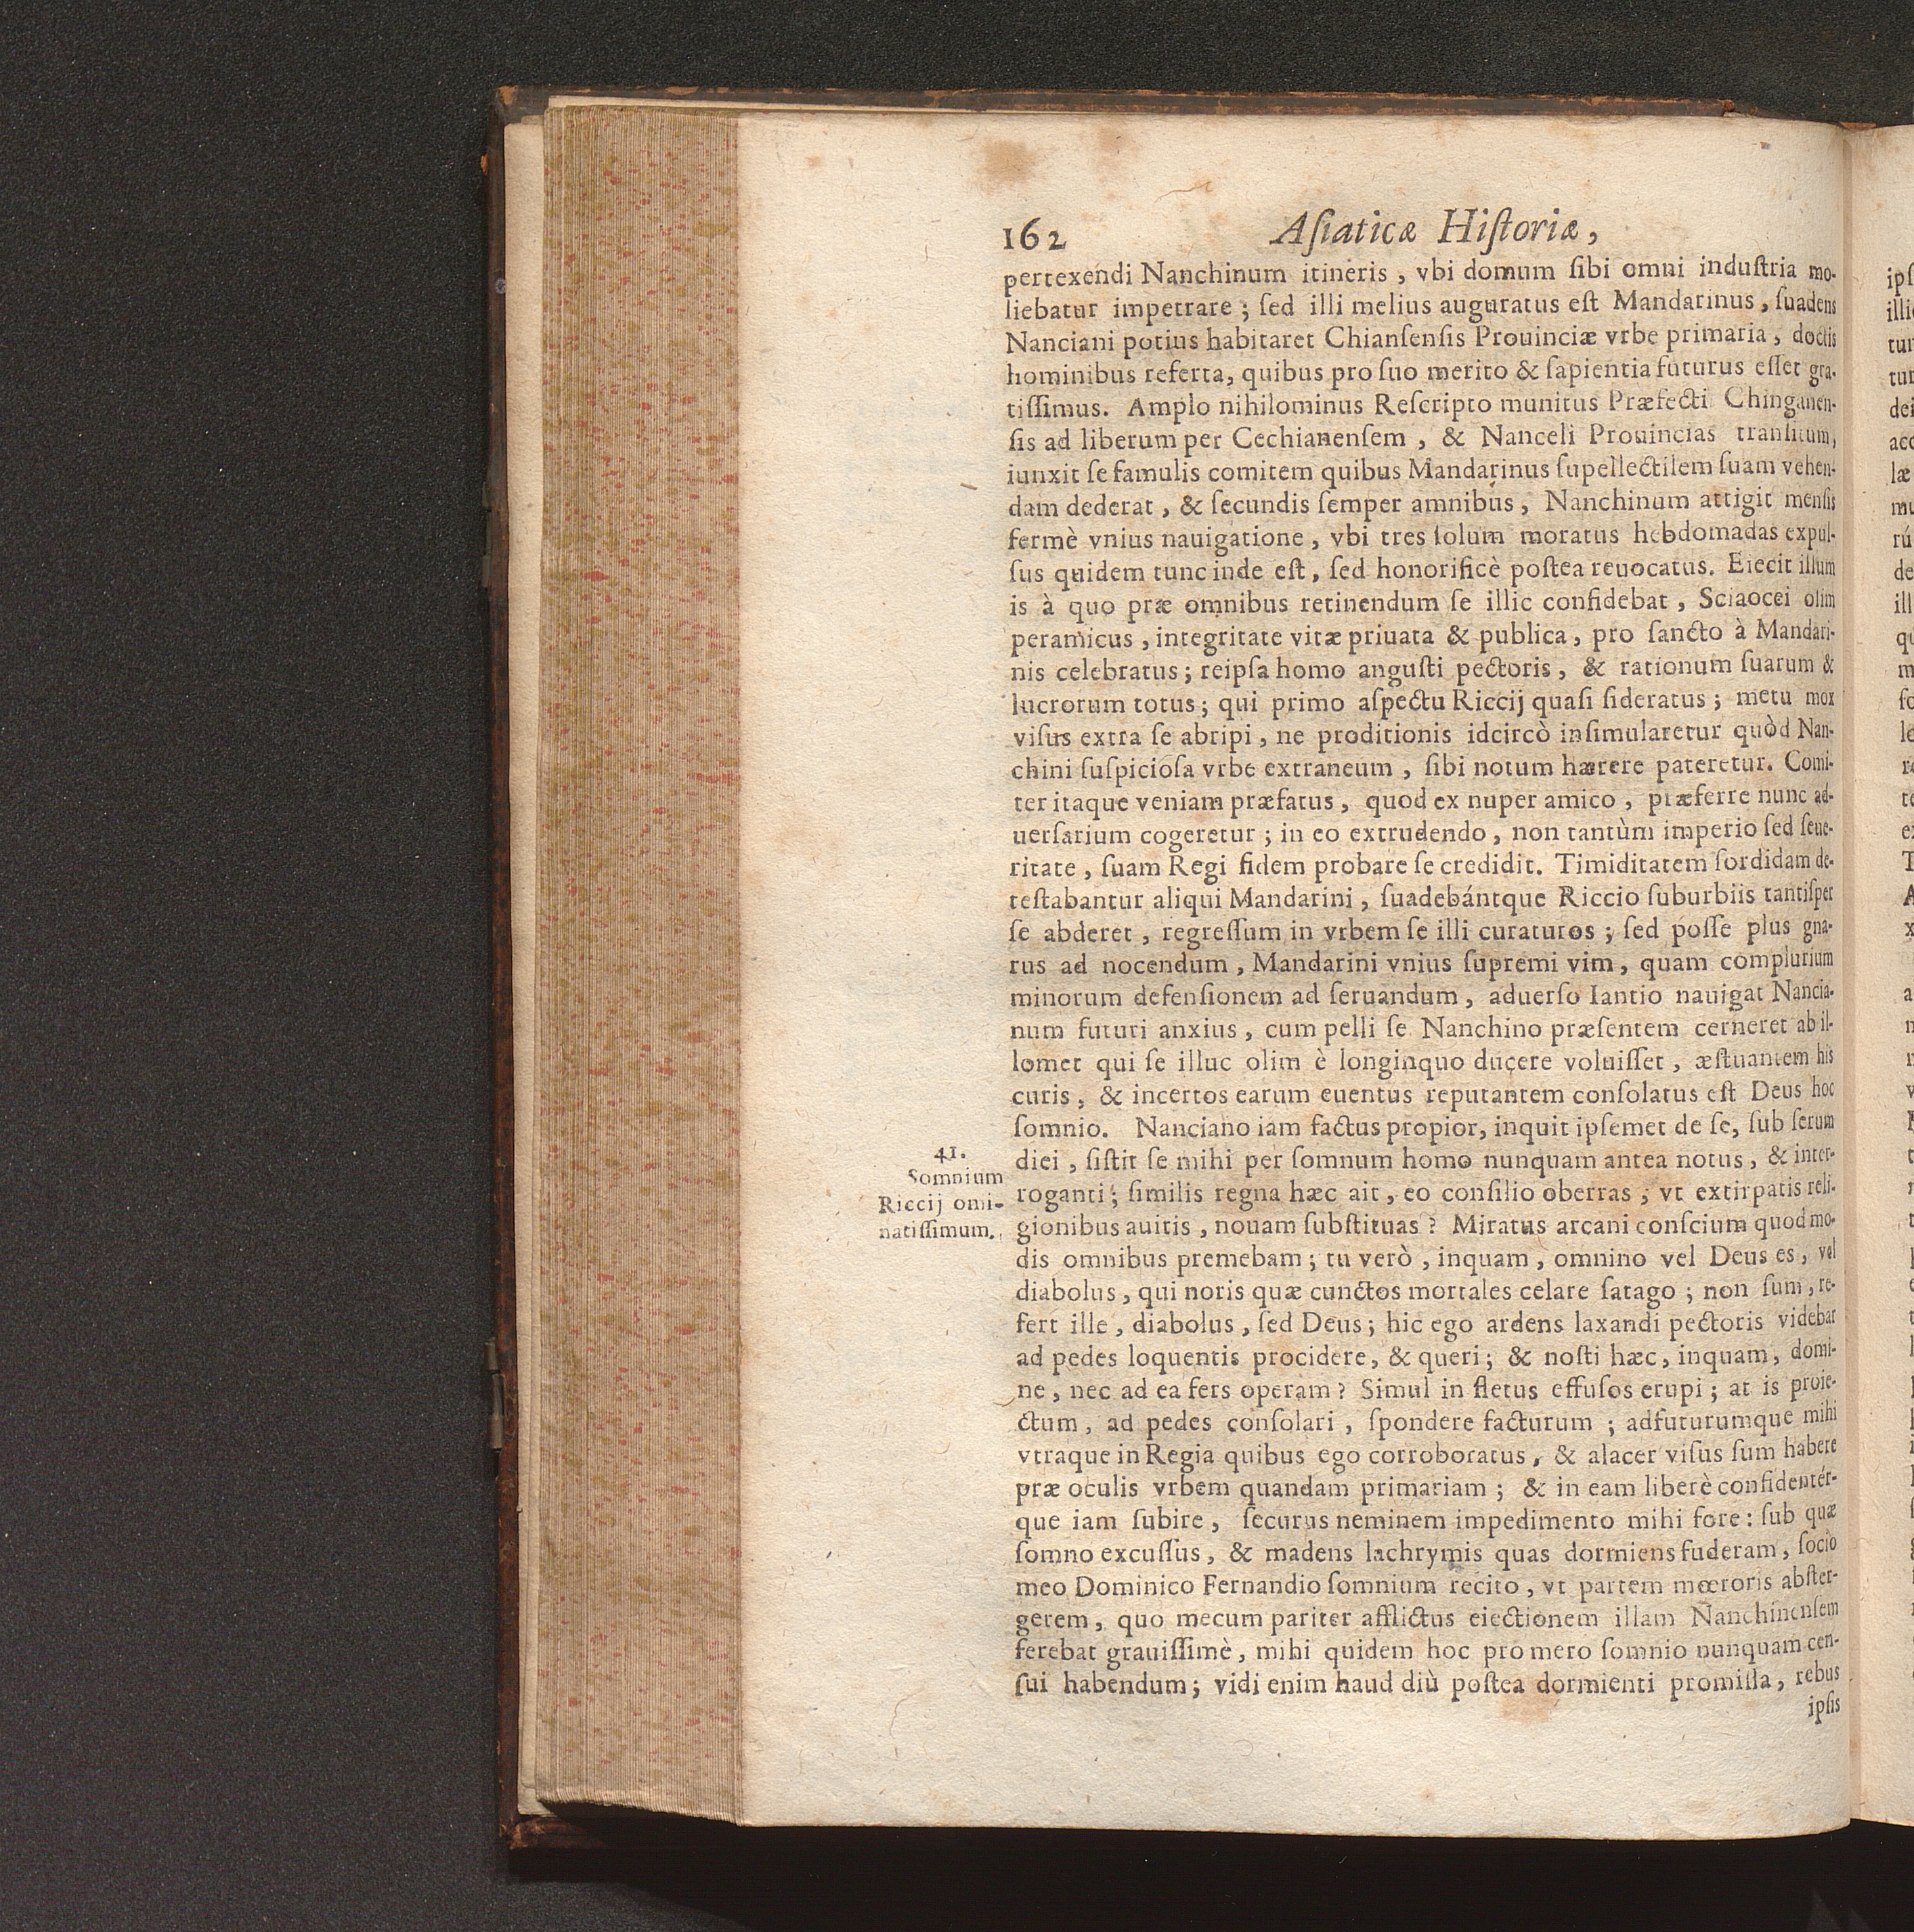 162 Aſiaticæ Hiſtoriæ,
pertexendi Nanchinum itineris, vbi domum ſibi omni induſtria mo-
liebatur impetrare; ſed illi melius auguratus eſt Mandarinus, ſuadens
Nanciani potius habitaret Chianſenſis Prouinciæ vrbe primaria, doctis
hominibus referta, quibus pro ſuo merito & ſapientia futurus eſſet gra-
tiſſimus. Amplo nihilominus Reſcripto munitus Præfecti Chinganen-
ſis ad liberum per Cechianenſem, & Nanceli Prouincias tranſitum,
iunxit ſe famulis comitem quibus Mandarinus ſupellectilem ſuam vehen-
dam dederat, & ſecundis ſemper amnibus, Nanchinum attigit menſis
fermè vnius nauigatione, vbi tres ſolum moratus hebdomadas expul-
ſus quidem tunc inde eſt, ſed honorificè poſtea reuocatus. Eiecit illum
is à quo præ omnibus retinendum ſe illic confidebat, Sciaocei olim
peramicus, integritate vitæ priuata & publica, pro ſancto à Mandari-
nis celebratus; reipſa homo anguſti pectoris, & rationum ſuarum &
lucrorum totus; qui primo aſpectu Riccij quaſi ſideratus; metu mox
viſus extra ſe abripi, ne proditionis idcircò inſimularetur quòd Nan-
chini ſuſpicioſa vrbe extraneum, ſibi notum hærere pateretur. Comi-
ter itaque veniam præfatus, quod ex nuper amico, præferre nunc ad-
uerſarium cogeretur; in eo extrudendo, non tantùm imperio ſed ſeue-
ritate, ſuam Regi fidem probare ſe credidit. Timiditatem ſordidam de-
teſtabantur aliqui Mandarini, ſuadebántque Riccio ſuburbiis tantiſper
ſe abderet, regreſſum in vrbem ſe illi curaturos; ſed poſſe plus gna-
rus ad nocendum, Mandarini vnius ſupremi vim, quam complurium
minorum defenſionem ad ſeruandum, aduerſo Iantio nauigat Nancia-
num futuri anxius, cum pelli ſe Nanchino præſentem cerneret ab il-
lomet qui ſe illuc olim è longinquo ducere voluiſſet, æſtuantem his
curis, & incertos earum euentus reputantem conſolatus eſt Deus hoc
ſomnio. Nanciano iam factus propior, inquit ipſemet de ſe, ſub ſerum
diei, ſiſtit ſe mihi per ſomnum homo nunquam antea notus, & inter-
roganti; ſimilis regna hæc ait, eo conſilio oberras; vt extirpatis reli-
gionibus auitis, nouam ſubſtituas? Miratus arcani conſcium quod mo-
dis omnibus premebam; tu verò, inquam, omnino vel Deus es, vel
diabolus, qui noris quæ cunctos mortales celare ſatago; non ſum, re-
fert ille, diabolus, ſed Deus; hic ego ardens laxandi pectoris videbar
ad pedes loquentis procidere, & queri; & noſti hæc, inquam, domi-
ne, nec ad ea fers operam? Simul in fletus effuſos erupi; at is proie-
ctum, ad pedes conſolari, ſpondere facturum; adfuturumque mihi
vtraque in Regia quibus ego corroboratus, & alacer viſus ſum habere
præ oculis vrbem quandam primariam; & in eam liberè confidentér-
que iam ſubire, ſecurus neminem impedimento mihi fore: ſub quæ
ſomno excuſſus, & madens lachrymis quas dormiens fuderam, ſocio
meo Dominico Fernandio ſomnium recito, vt partem mœroris abſter-
gerem, quo mecum pariter afflictus eiectionem illam Nanchinenſem
ferebat grauiſſimè, mihi quidem hoc pro mero ſomnio nunquam cen-
ſui habendum; vidi enim haud diù poſtea dormienti promiſſa, rebus
ipſis
41.
Somnium
Riccij omi-
natiſſimum.